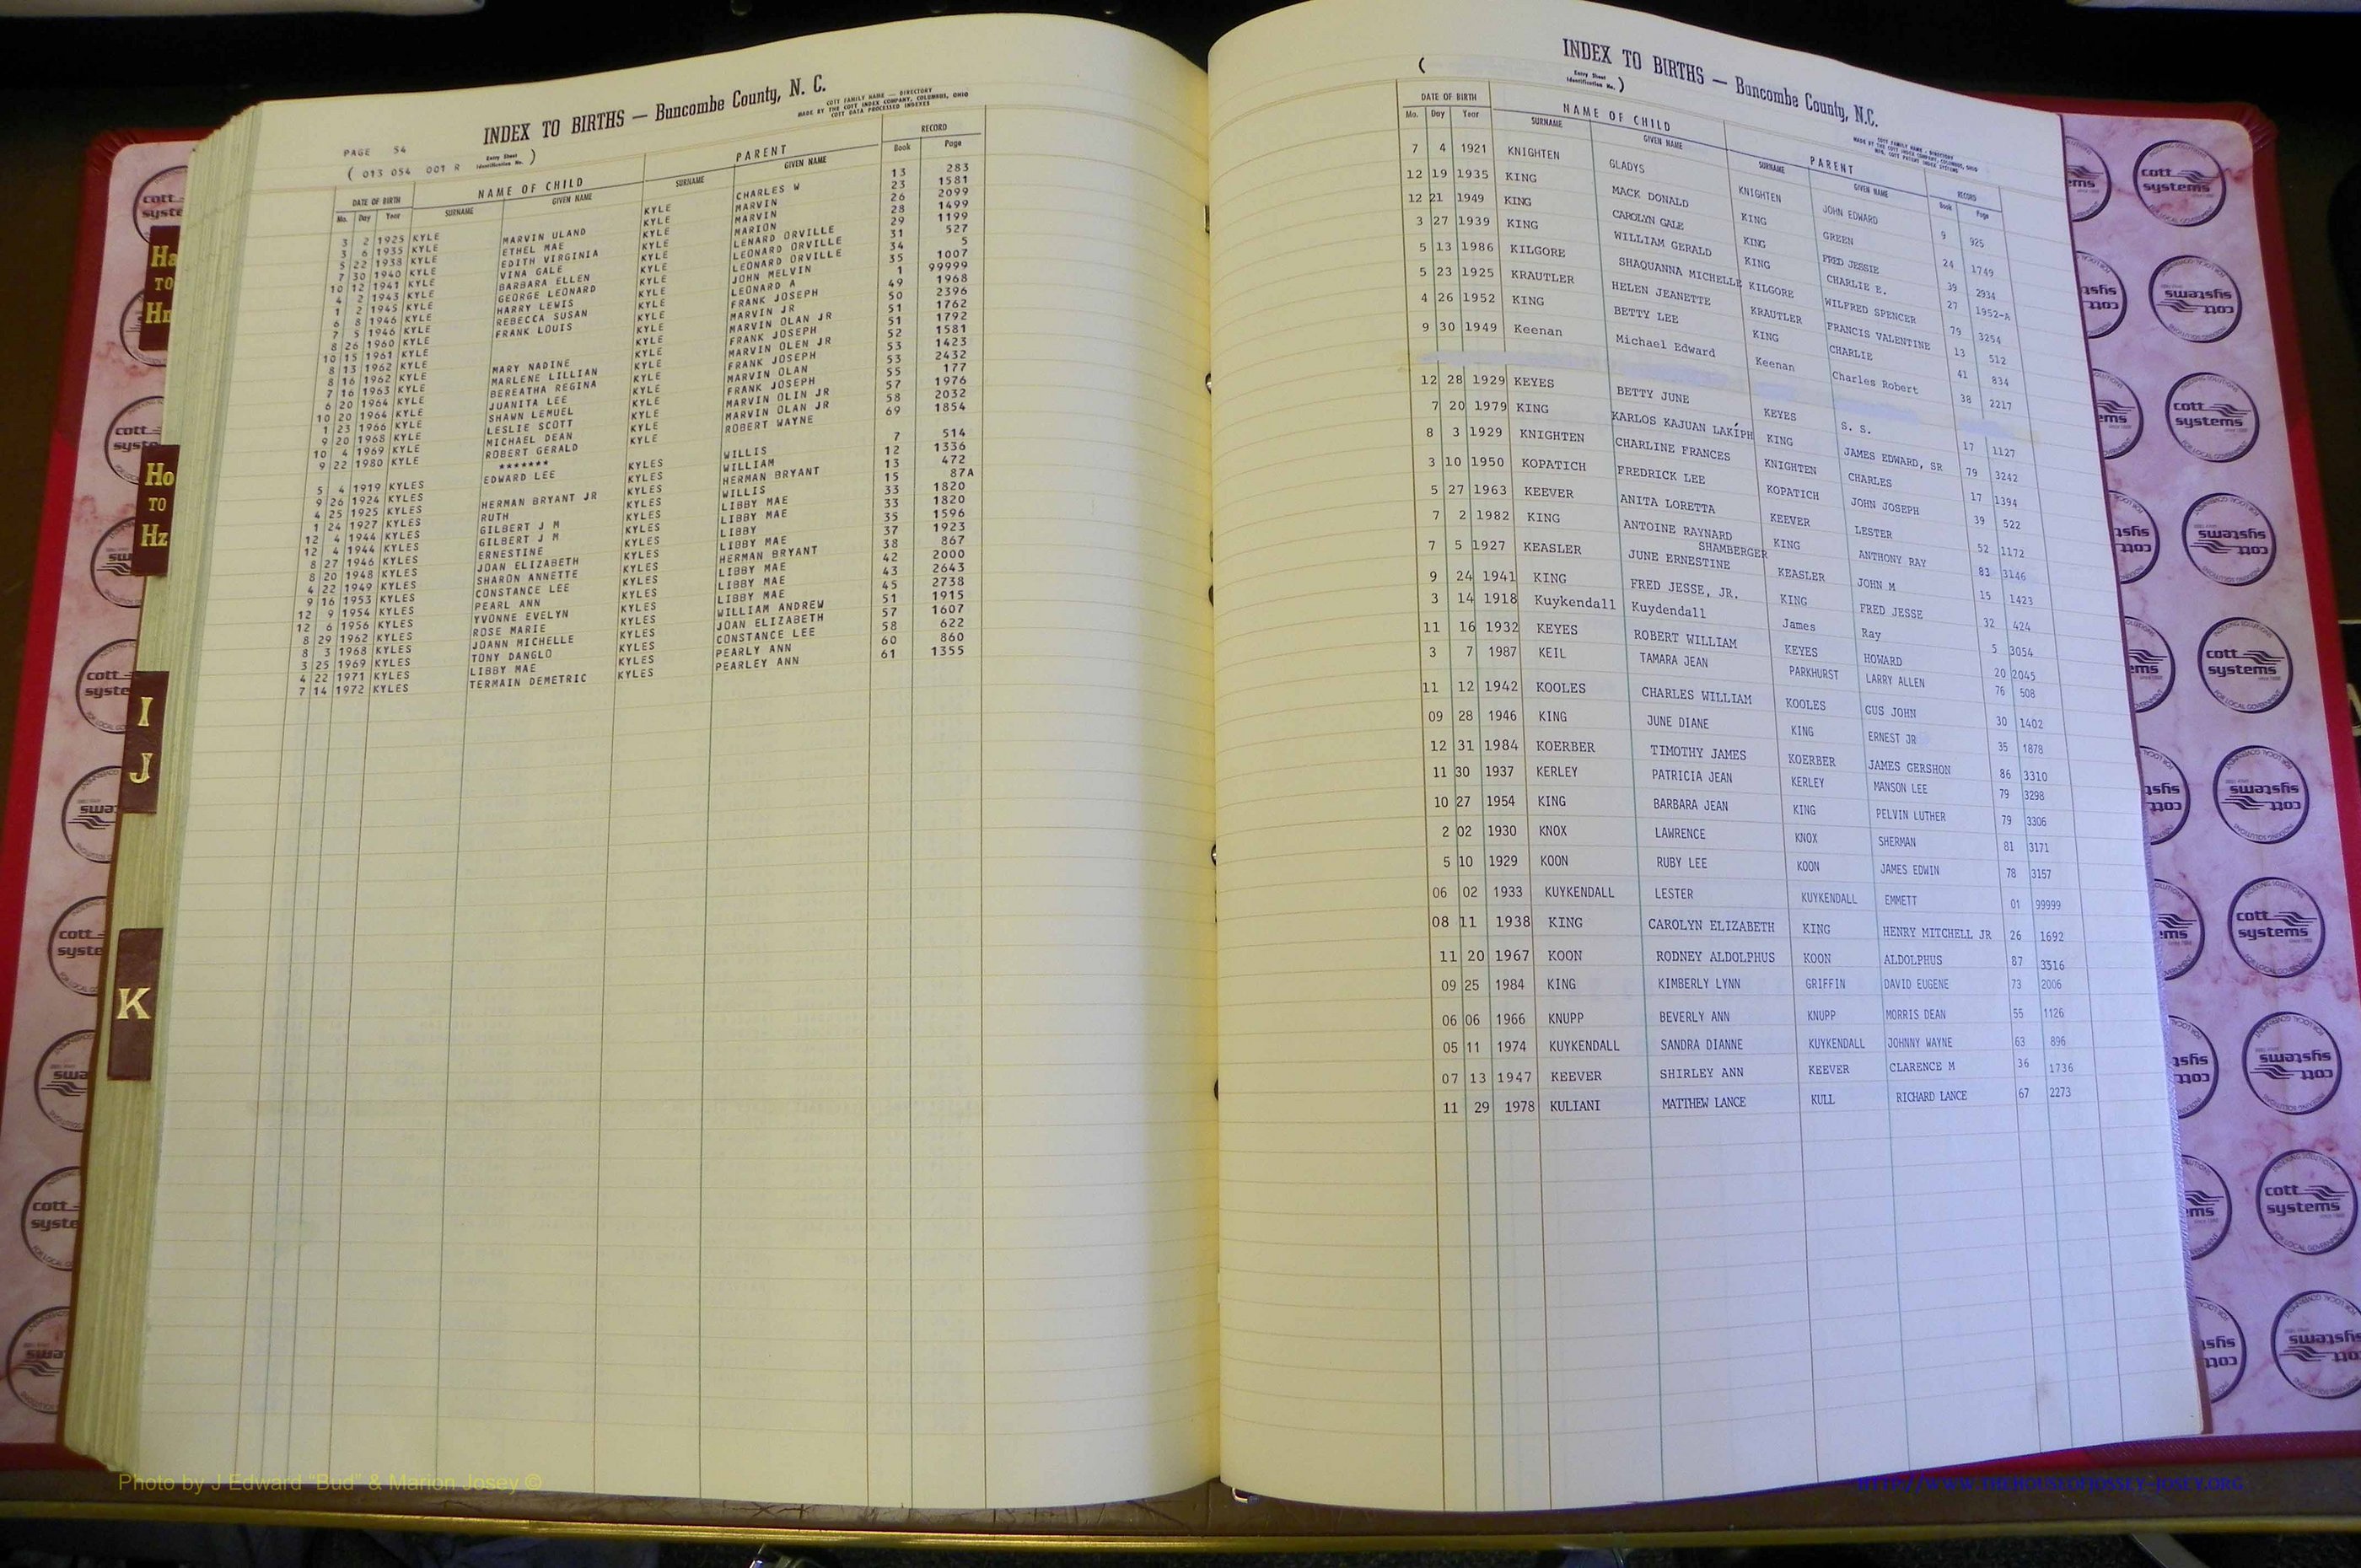 INDEX TO BIRTHS — Buncombe County, N. C.
COTT FAMILY NAME — DIRECTORY
MADE BY THE COTT INDEX COMPANY, COLUMBUS, OHIO
COTT DATA PROCESSED INDEXES
PAGE 54
( 013 054 001 R Entry Sheet Identification No. )
DATE OF BIRTH NAME OF CHILD PARENT RECORD
Mo. Day Year SURNAME GIVEN NAME SURNAME GIVEN NAME Book Page
3 2 1925 KYLE MARVIN ULAND KYLE CHARLES W 13 283
3 6 1935 KYLE ETHEL MAE KYLE MARVIN 23 1581
5 22 1938 KYLE EDITH VIRGINIA KYLE MARVIN 26 2099
7 30 1940 KYLE VINA GALE KYLE MARION 28 1499
10 12 1941 KYLE BARBARA ELLEN KYLE LENARD ORVILLE 29 1199
4 2 1943 KYLE GEORGE LEONARD KYLE LEONARD ORVILLE 31 527
1 2 1945 KYLE HARRY LEWIS KYLE LEONARD ORVILLE 34 5
6 8 1946 KYLE REBECCA SUSAN KYLE JOHN MELVIN 35 1007
7 5 1946 KYLE FRANK LOUIS KYLE LEONARD A 1 99999
8 26 1960 KYLE KYLE FRANK JOSEPH 49 1968
10 15 1961 KYLE KYLE MARVIN JR 50 2396
8 13 1962 KYLE KYLE MARVIN OLAN JR 51 1762
8 16 1962 KYLE MARY NADINE KYLE FRANK JOSEPH 51 1792
7 16 1963 KYLE MARLENE LILLIAN KYLE MARVIN OLEN JR 52 1581
6 20 1964 KYLE BEREATHA REGINA KYLE FRANK JOSEPH 53 1423
10 20 1964 KYLE JUANITA LEE KYLE MARVIN OLAN 53 2432
1 23 1966 KYLE SHAWN LEMUEL KYLE FRANK JOSEPH 55 177
9 20 1968 KYLE LESLIE SCOTT KYLE MARVIN OLIN JR 57 1976
10 4 1969 KYLE MICHAEL DEAN KYLE MARVIN OLAN JR 58 2032
9 22 1980 KYLE ROBERT GERALD KYLE ROBERT WAYNE 69 1854
*******
5 4 1919 KYLES EDWARD LEE KYLES WILLIS 7 514
9 26 1924 KYLES KYLES WILLIAM 12 1336
4 25 1925 KYLES HERMAN BRYANT JR KYLES HERMAN BRYANT 13 472
1 24 1927 KYLES RUTH KYLES WILLIS 15 87A
12 4 1944 KYLES GILBERT J M KYLES LIBBY MAE 33 1820
12 4 1944 KYLES GILBERT J M KYLES LIBBY MAE 33 1820
8 27 1946 KYLES ERNESTINE KYLES LIBBY 35 1596
8 20 1948 KYLES JOAN ELIZABETH KYLES LIBBY MAE 37 1923
4 22 1949 KYLES SHARON ANNETTE KYLES HERMAN BRYANT 38 867
9 16 1953 KYLES CONSTANCE LEE KYLES LIBBY MAE 42 2000
12 9 1954 KYLES PEARL ANN KYLES LIBBY MAE 43 2643
12 6 1956 KYLES YVONNE EVELYN KYLES LIBBY MAE 45 2738
8 29 1962 KYLES ROSE MARIE KYLES WILLIAM ANDREW 51 1915
8 3 1968 KYLES JOANN MICHELLE KYLES JOAN ELIZABETH 57 1607
3 25 1969 KYLES TONY DANGLO KYLES CONSTANCE LEE 58 622
4 22 1971 KYLES LIBBY MAE KYLES PEARLY ANN 60 860
7 14 1972 KYLES TERMAIN DEMETRIC KYLES PEARLEY ANN 61 1355
Ha TO Hn
Ho TO Hz
I J
K
INDEX TO BIRTHS — Buncombe County, N.C.
( Entry Sheet Identification No. )
DATE OF BIRTH NAME OF CHILD PARENT RECORD
Mo. Day Year SURNAME GIVEN NAME SURNAME GIVEN NAME Book Page
7 4 1921 KNIGHTEN GLADYS KNIGHTEN JOHN EDWARD 9 925
12 19 1935 KING MACK DONALD KING GREEN 24 1749
12 21 1949 KING CAROLYN GALE KING FRED JESSIE 39 2934
3 27 1939 KING WILLIAM GERALD KING CHARLIE E. 27 1952-A
5 13 1986 KILGORE SHAQUANNA MICHELLE KILGORE WILFRED SPENCER 79 3254
5 23 1925 KRAUTLER HELEN JEANETTE KRAUTLER FRANCIS VALENTINE 13 512
4 26 1952 KING BETTY LEE KING CHARLIE 41 834
9 30 1949 Keenan Michael Edward Keenan Charles Robert 38 2217
12 28 1929 KEYES BETTY JUNE KEYES S. S. 17 1127
7 20 1979 KING KARLOS KAJUAN LAKÍPH KING JAMES EDWARD, SR 79 3242
8 3 1929 KNIGHTEN CHARLINE FRANCES KNIGHTEN CHARLES 17 1394
3 10 1950 KOPATICH FREDRICK LEE KOPATICH JOHN JOSEPH 39 522
5 27 1963 KEEVER ANITA LORETTA KEEVER LESTER 52 1172
7 2 1982 KING ANTOINE RAYNARD SHAMBERGER KING ANTHONY RAY 83 3146
7 5 1927 KEASLER JUNE ERNESTINE KEASLER JOHN M 15 1423
9 24 1941 KING FRED JESSE, JR. KING FRED JESSE 32 424
3 14 1918 Kuykendall Kuydendall James Ray 5 3054
11 16 1932 KEYES ROBERT WILLIAM KEYES HOWARD 20 2045
3 7 1987 KEIL TAMARA JEAN PARKHURST LARRY ALLEN 76 508
11 12 1942 KOOLES CHARLES WILLIAM KOOLES GUS JOHN 30 1402
09 28 1946 KING JUNE DIANE KING ERNEST JR 35 1878
12 31 1984 KOERBER TIMOTHY JAMES KOERBER JAMES GERSHON 86 3310
11 30 1937 KERLEY PATRICIA JEAN KERLEY MANSON LEE 79 3298
10 27 1954 KING BARBARA JEAN KING PELVIN LUTHER 79 3306
2 02 1930 KNOX LAWRENCE KNOX SHERMAN 81 3171
5 10 1929 KOON RUBY LEE KOON JAMES EDWIN 78 3157
06 02 1933 KUYKENDALL LESTER KUYKENDALL EMMETT 01 99999
08 11 1938 KING CAROLYN ELIZABETH KING HENRY MITCHELL JR 26 1692
11 20 1967 KOON RODNEY ALDOLPHUS KOON ALDOLPHUS 87 3316
09 25 1984 KING KIMBERLY LYNN GRIFFIN DAVID EUGENE 73 2006
06 06 1966 KNUPP BEVERLY ANN KNUPP MORRIS DEAN 55 1126
05 11 1974 KUYKENDALL SANDRA DIANNE KUYKENDALL JOHNNY WAYNE 63 896
07 13 1947 KEEVER SHIRLEY ANN KEEVER CLARENCE M 36 1736
11 29 1978 KULIANI MATTHEW LANCE KULL RICHARD LANCE 67 2273
cott systems
Photo by J Edward “Bud” & Marion Josey ©
HTTP://WWW.THEHOUSEOFJOSSEY-JOSEY.ORG